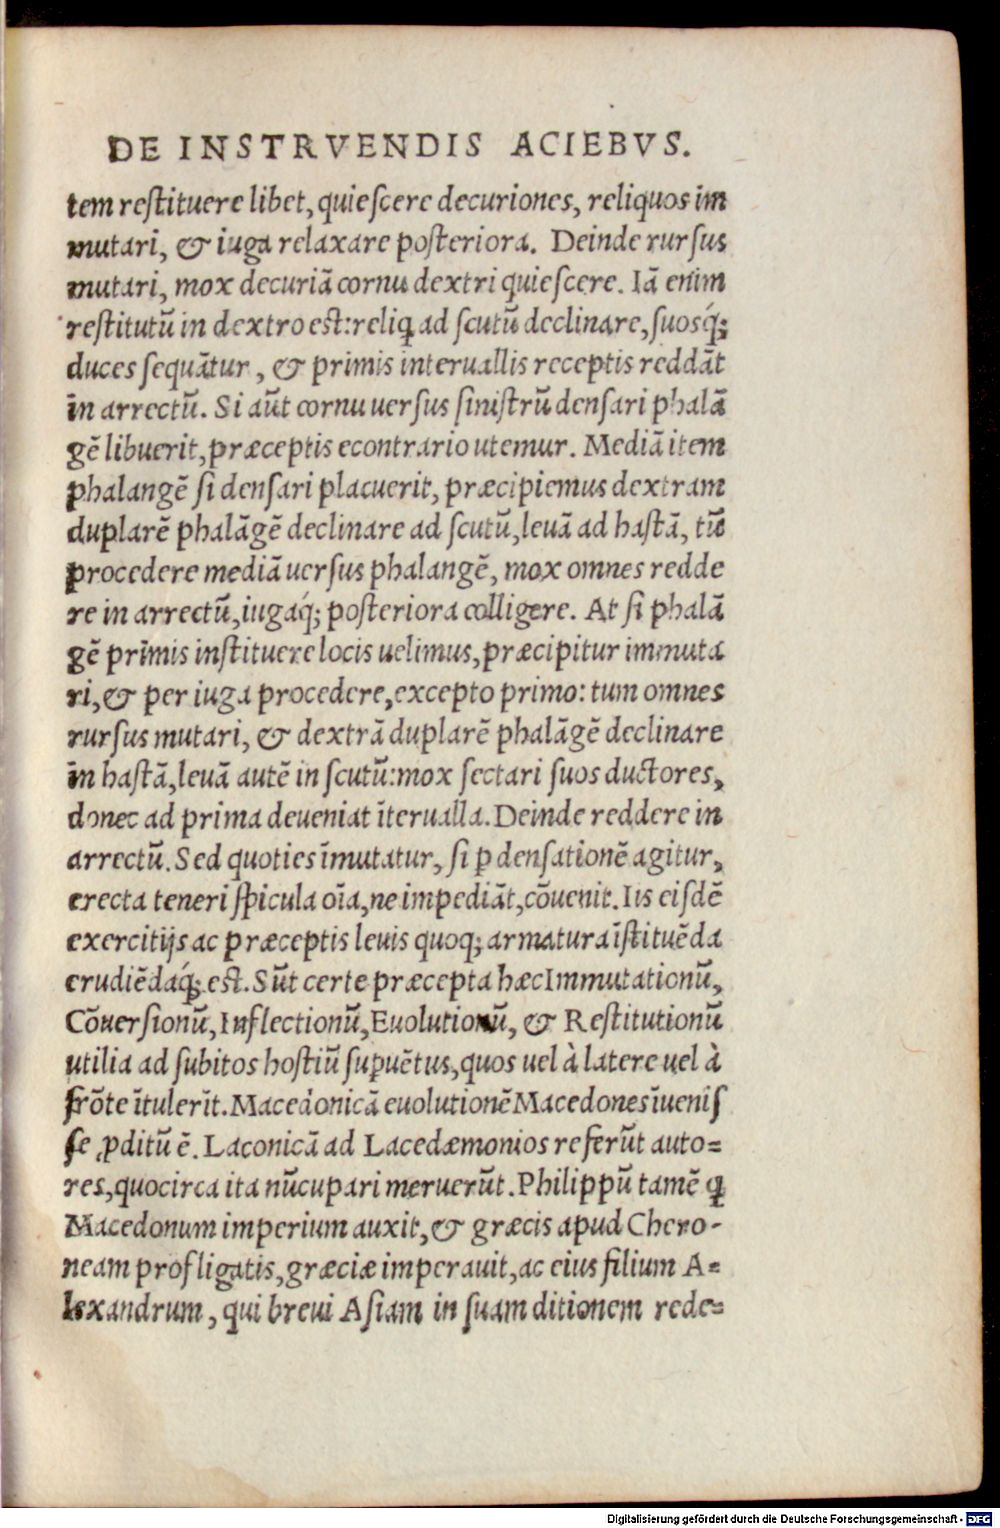 DE INSTRVENDIS ACIEBVS.
tem reſtituere libet, quieſcere decuriones, reliquos im
mutari, & iuga relaxare poſteriora. Deinde rurſus
mutari, mox decuriā cornu dextri quieſcere. Iā enim
reſtitutū in dextro est: reliq̨ ad ſcutū declinare, ſuosq́;
duces ſequātur, & primis interuallis receptis reddāt
in arrectū. Si aūt cornu uerſus ſiniſtrū denſari phalā
gē libuerit, præceptis econtrario utemur. Mediā item
phalangē ſi denſari placuerit, præcipiemus dextram
duplarē phalāgē declinare ad ſcutū, leuā ad haſtā, tū
procedere mediā uerſus phalangē, mox omnes redde
re in arrectū, iugaq́; poſteriora colligere. At ſi phalā
gē primis inſtituere locis uelimus, præcipitur immuta
ri, & per iuga procedere, excepto primo: tum omnes
rurſus mutari, & dextrā duplarē phalāgē declinare
in haſtā, leuā autē in ſcutū: mox ſectari ſuos ductores,
donec ad prima deueniat īterualla. Deinde reddere in
arrectū. Sed quoties īmutatur, ſi ꝑ denſationē agitur,
erecta teneri ſpicula oīa, ne impediāt, cōuenit. Iis eiſdē
exercitijs ac præceptis leuis quoq; armatura īſtituēda
erudiēdaq́; eſt. Sūt certe præcepta hæc Immutationū,
Cōuerſionū, Inflectionū, Euolutionū, & Reſtitutionū
utilia ad ſubitos hoſtiū ſupuētus, quos uel à latere uel à
frōte ītulerīt. Macedonicā euolutionē Macedones īueniſ
ſe ꝓditū ē. Laconicā ad Lacedæmonios referūt auto=
res, quocirca ita nūcupari meruerūt. Philippū tamē q̨
Macedonum imperium auxit, & græcis apud Chero-
neam profligatis, græciæ imperauit, ac eius filium A=
lexandrum, qui breui Aſiam in ſuam ditionem rede=
Digitalisierung gefördert durch die Deutsche Forschungsgemeinschaft - DFG